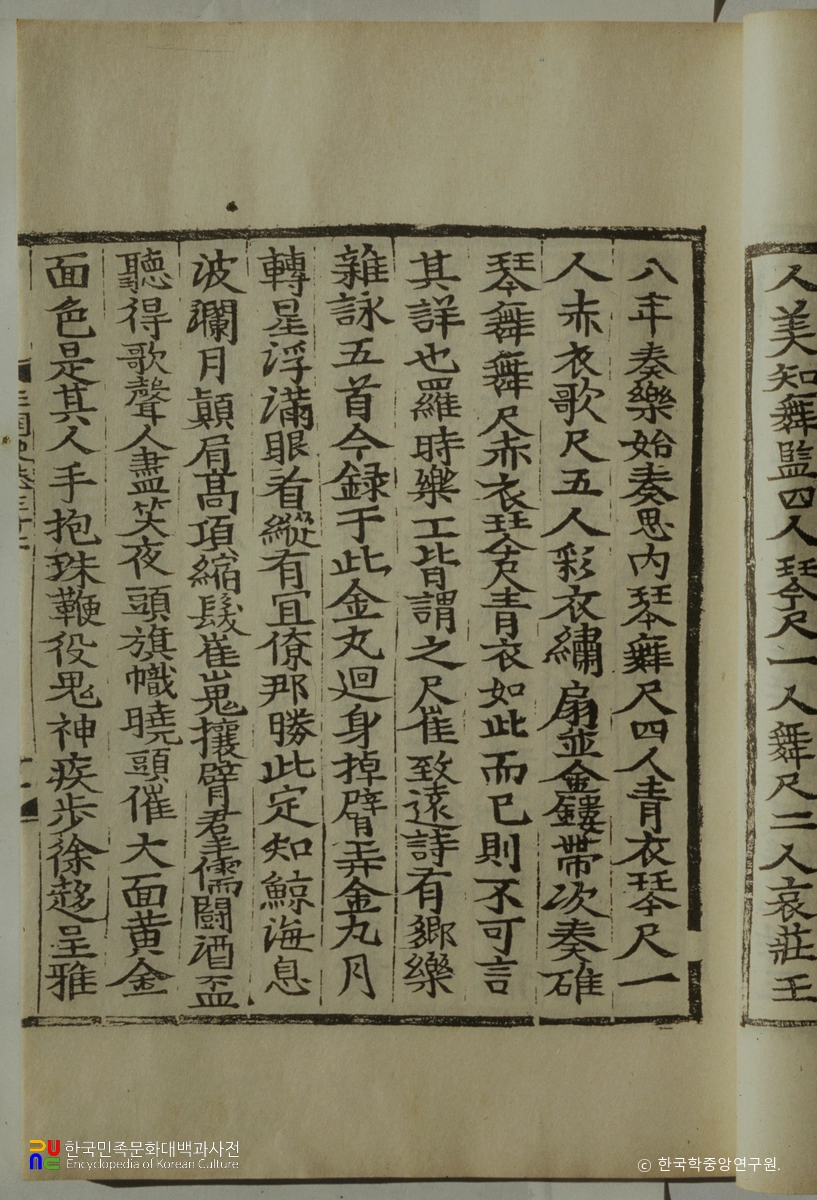 人美知舞監四人琴尺一人舞尺二人哀莊王
八年奏樂始奏思內琴舞尺四人青衣琴尺一
人赤衣歌尺五人彩衣繡扇並金鏤帶次奏碓
琴舞舞尺赤衣琴尺青衣如此而已則不可言
其詳也羅時樂工皆謂之尺崔致遠詩有鄕樂
雜詠五首今録于此金丸迴身掉臂弄金丸月
轉星浮滿眼看縱有宜僚那勝此定知鯨海息
波瀾月顚肩高項縮髮崔嵬攘臂群儒鬪酒盃
聽得歌聲人盡笑夜頭旗幟曉頭催大面黃金
面色是其人手抱珠鞭役鬼神疾步徐趍呈雅
한국민족문화대백과사전
Encyclopedia of Korean Culture
© 한국학중앙연구원.